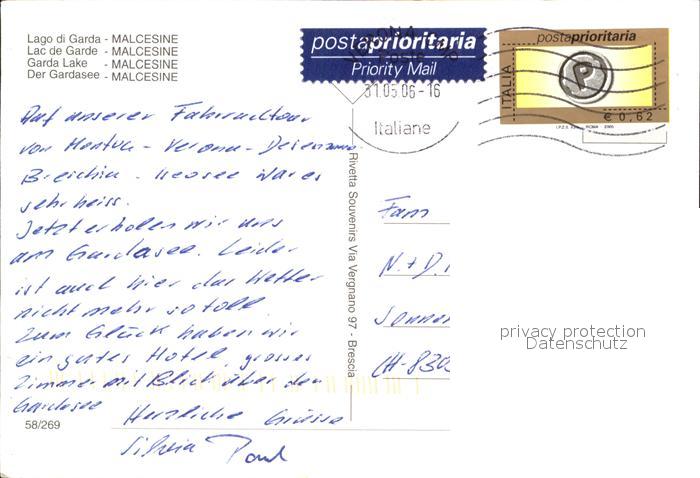 Lago di Garda - MALCESINE
Lac de Garde - MALCESINE
Garda Lake - MALCESINE
Der Gardasee - MALCESINE
postaprioritaria
Priority Mail
31.05.06-16
Italiane
postaprioritaria
ITALIA
P
€ 0,62
Auf unserer Fahrradtour
von - Verona -
war es
sehr heiss.
Jetzt erholen wir uns
am Gardasee. Leider
ist auch hier das Wetter
nicht mehr so toll.
Zum Glück haben wir
ein gutes Hotel, grosses
Zimmer mit Blick über den
Gardasee
Herzliche Grüsse
Silvia Paul
58/269
Rivetta Souvenirs Via Vergnano 97 - Brescia
Fam
N. + D.
CH-830
privacy protection
Datenschutz